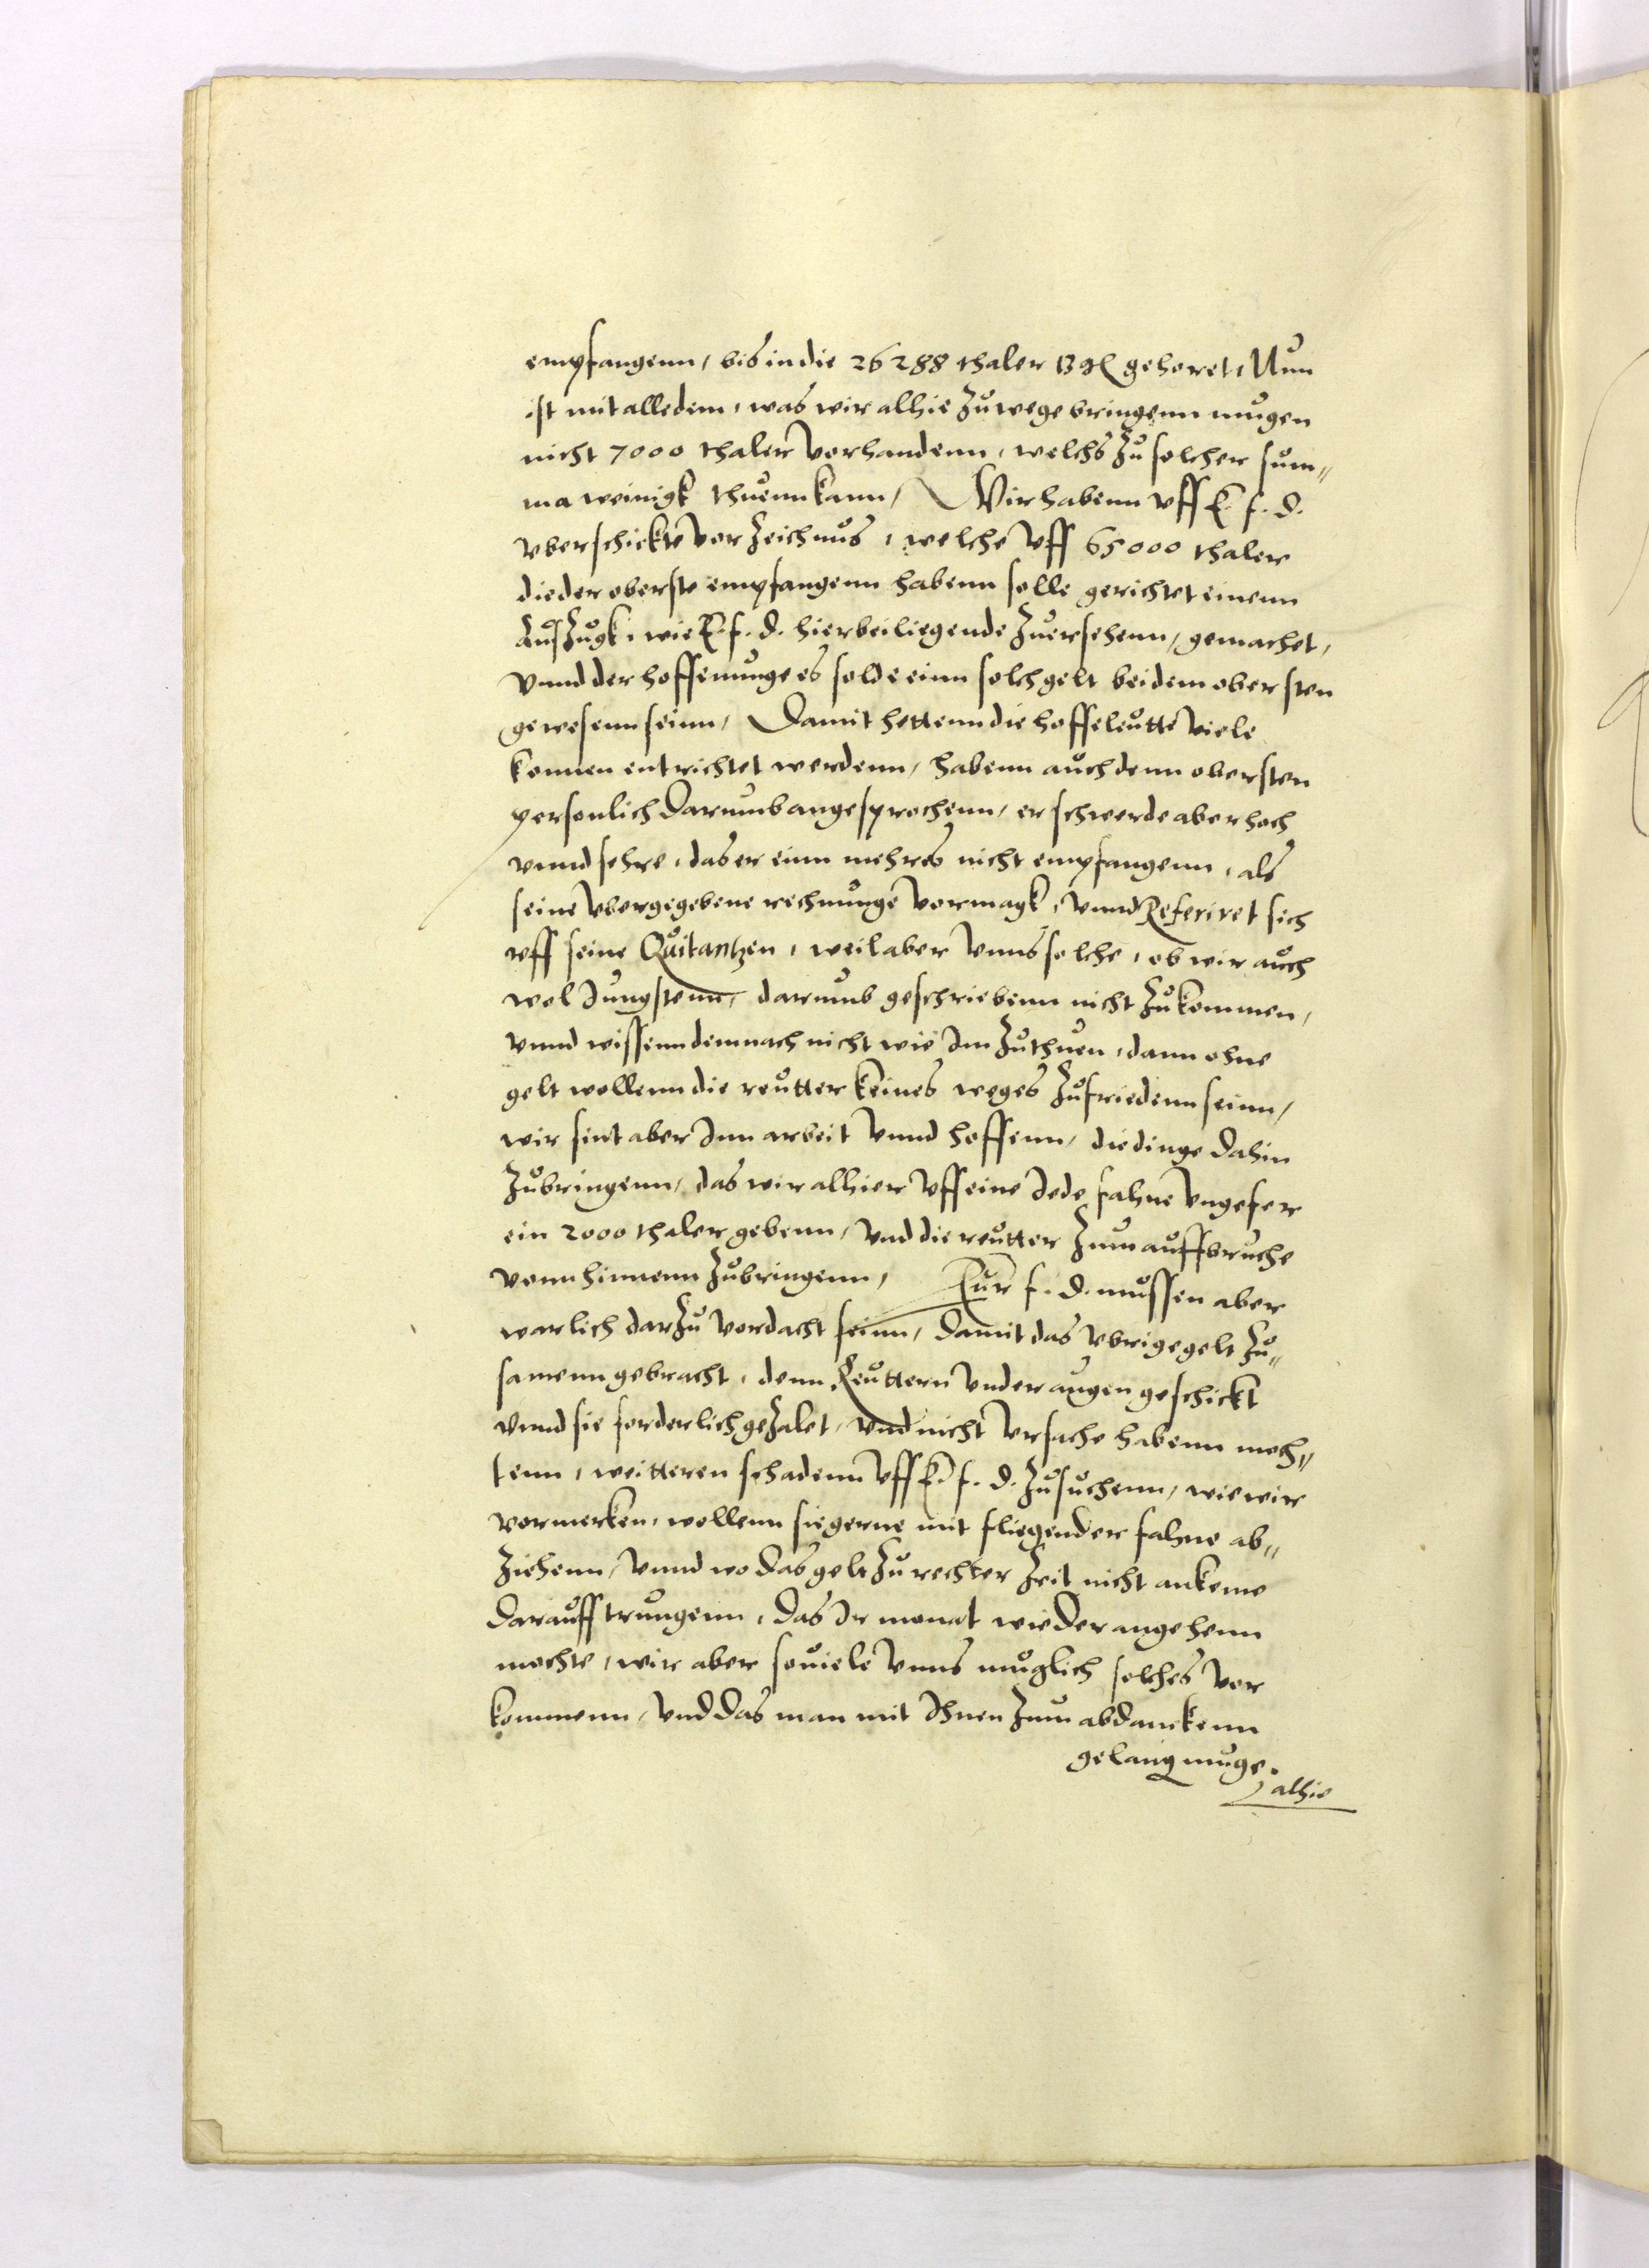 empfangenn, bis in die 26288 thaler 13 gl gehoret, Nun
ist mit alledem, was wir alhie zuwege bringenn mugen
nicht 7000 thaler vorhandenn, welchs zu solcher sum„
ma weinigk thuenn kann, Wir habenn vff E. f. d.
vberschickte vorzeichnus, welche vff 65000 thaler
die der oberste empfangenn habenn solle gerichtet einenn
Auszugk, wie E. f. d. hierbei liegende zuersehenn, gemachet,
vnnd der hoffenunge es solde einn solch gelt bei dem obersten
gewesenn seinn, Damit hettenn die hoffeleutte viele
konnen entrichtet werdenn, habenn auch denn obersten
personlich darumb angesprochenn, er schwerde aber hoch
vnnd sehre, das er einn mehres nicht empfangenn, als
seine vbergegebene rechnunge vormagk, vnnd Referiret sich
vff seine Quitantzen, weil aber vnns solche, ob wir auch
wol Jungstenn, darumb geschriebenn nicht zukommen,
vnnd wissenn demnach nicht wie Im zuthuen, dann ohne
gelt wollenn die reutter keines weges zufriedenn seinn,
wir sint aber Inn arbeit vnnd hoffenn, die dinge dahin
zubringenn, das wir alhier vff eine Jede fahne vngefer
ein 2000 thaler gebenn, vnd die reutter zum auffbruche
vonn hinnenn zubringenn, Eur f. d. mussen aber
warlich darzu vordacht seinn, damit das vbrige gelt zu„
samenn gebracht, denn Reuttern vnder augen geschickt
vnnd sie forderlich gezalet, vnd nicht vrsache habenn moch„
tenn, weitteren schadenn vff E. f. d. zusuchenn, wie wir
vormerken, wollenn sie gerne mit fliegender fahne ab„
ziehenn, vnnd wo das gelt zu rechter zeit nicht ankeme
darauff trungenn, das Ir monat wieder angehenn
mochte, wir aber souiele vnns muglich solches vor
kommenn, vnd das man mit Ihnen zum abdanckenn
gelang muge.
alhie